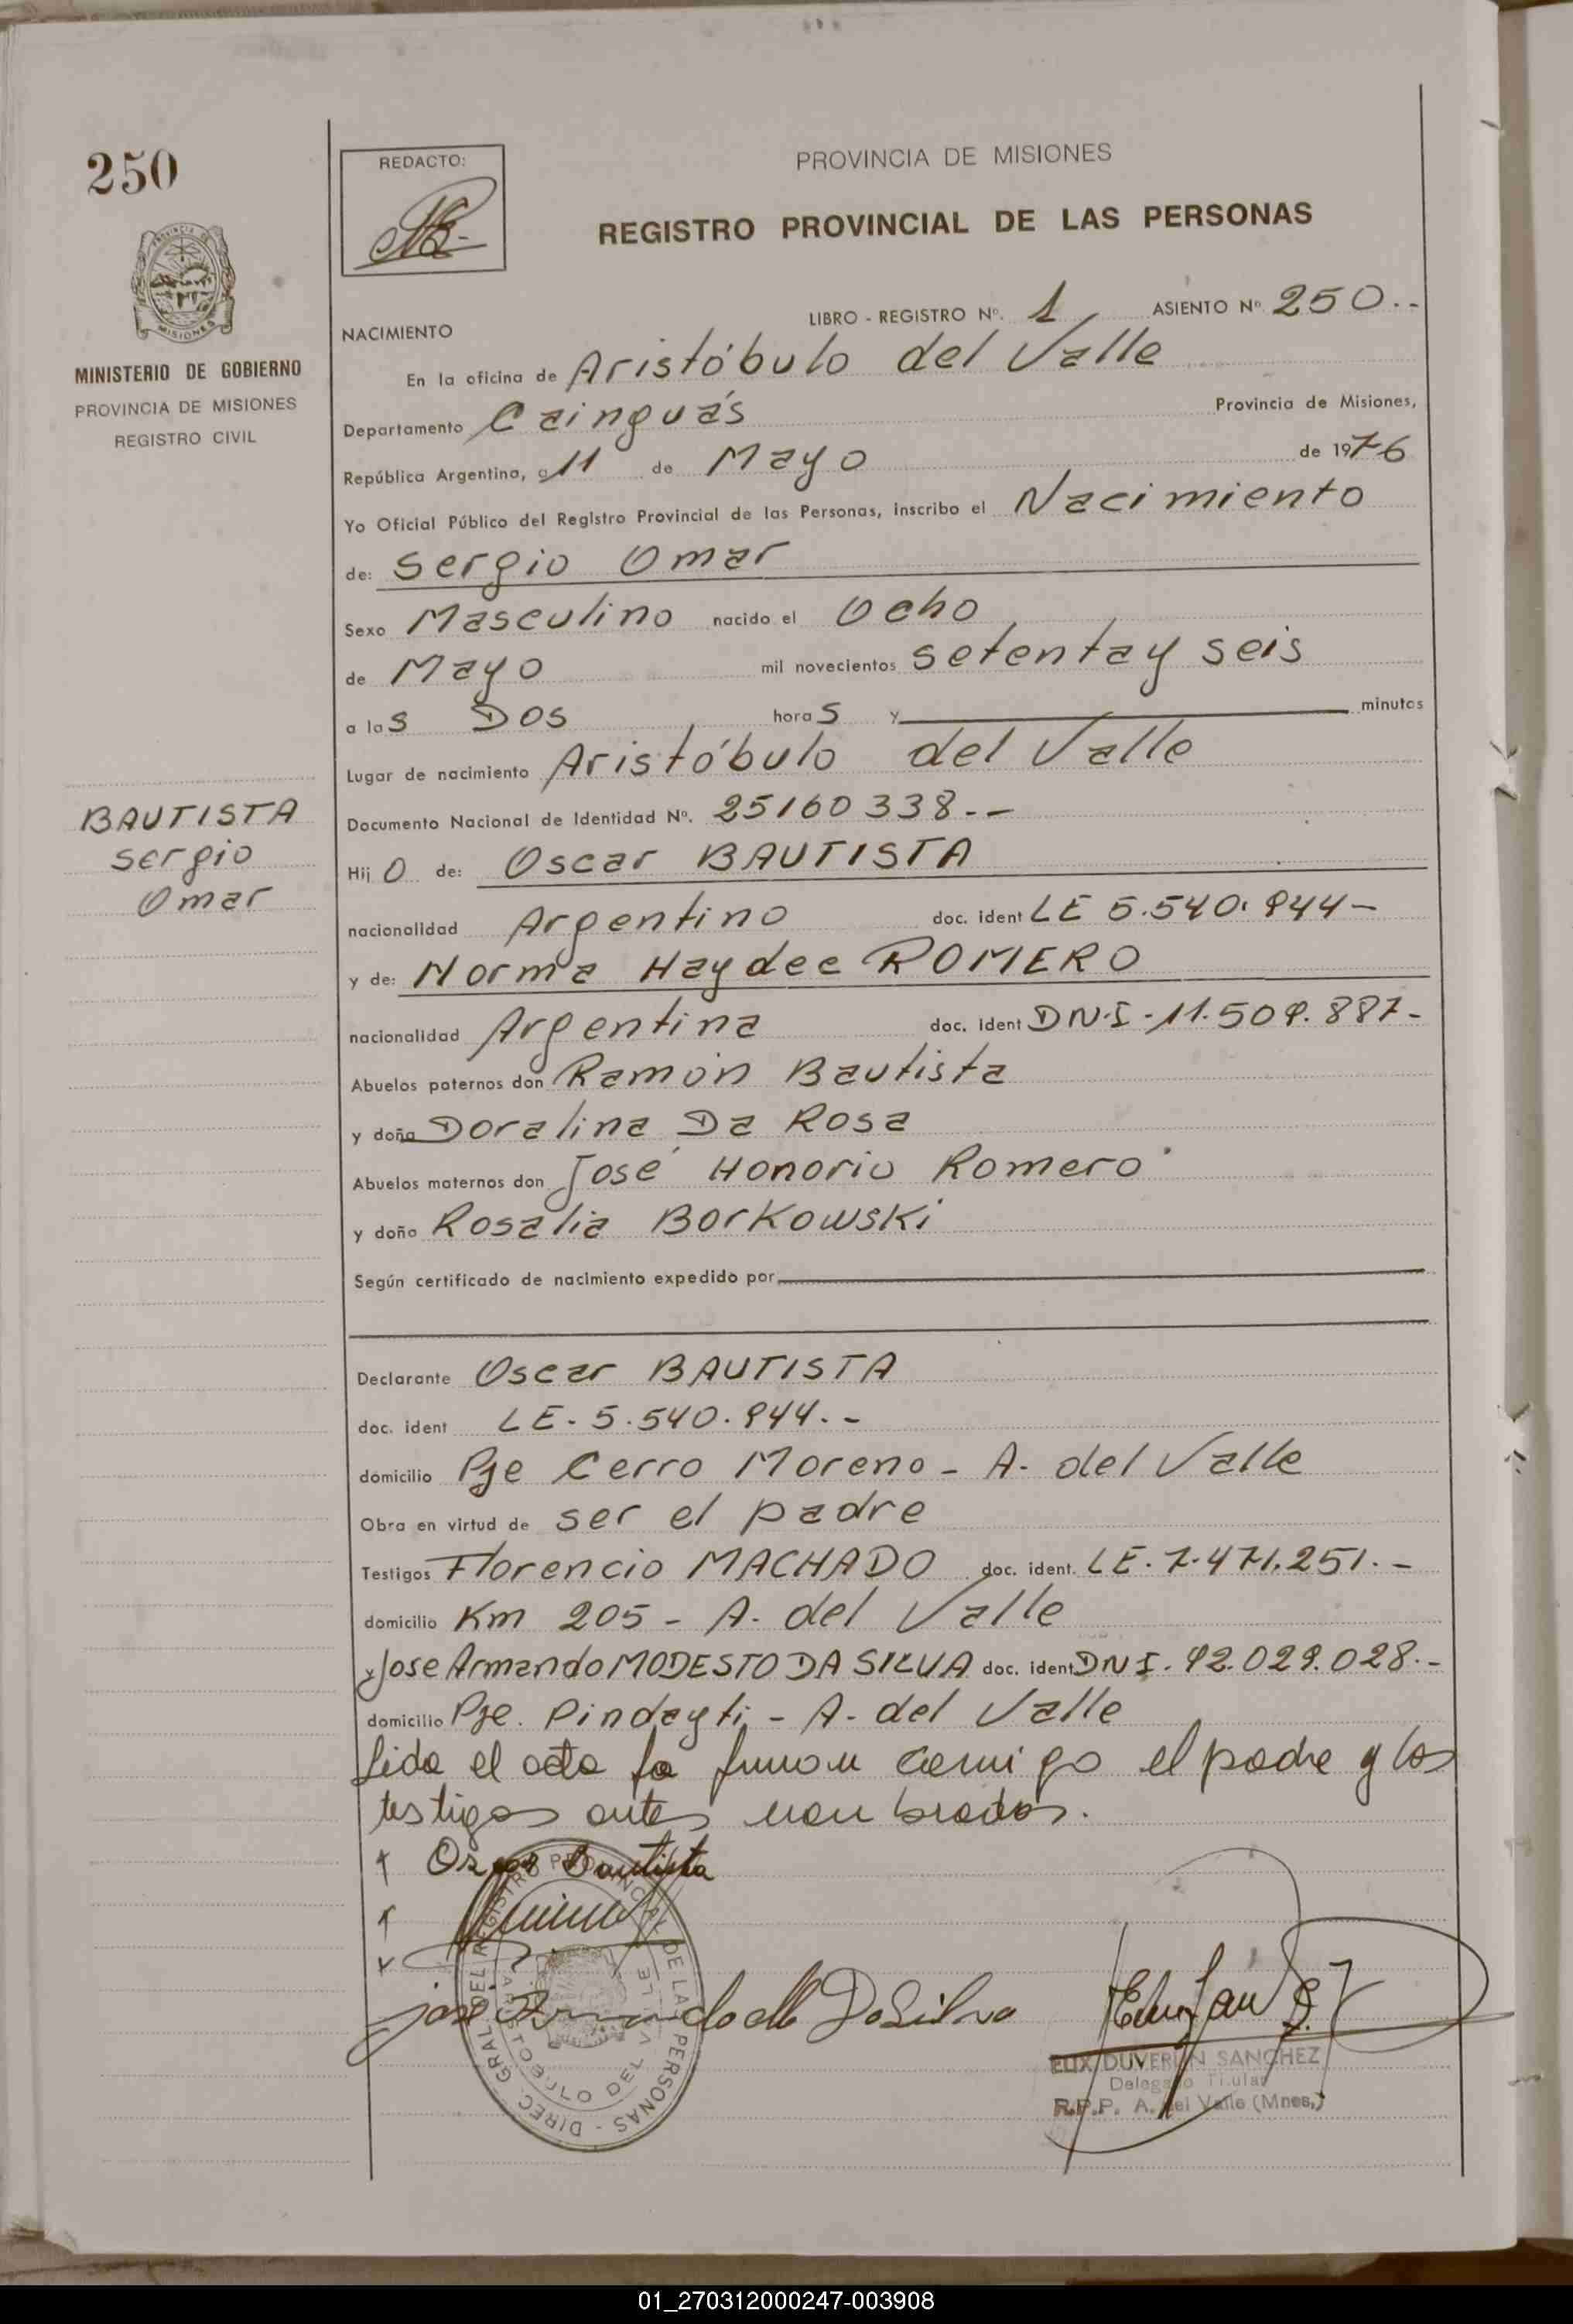 250
REDACTO:
PROVINCIA DE MISIONES
REGISTRO PROVINCIAL DE LAS PERSONAS
MISIONES
MINISTERIO DE GOBIERNO
PROVINCIA DE MISIONES
REGISTRO CIVIL
LIBRO - REGISTRO Nº. 1 ASIENTO Nº 250--
NACIMIENTO
En la oficina de Aristóbulo del Valle
Departamento Cainguás Provincia de Misiones,
República Argentina, a 11 de Mayo de 1976
Yo Oficial Público del Registro Provincial de las Personas, inscribo el Nacimiento
de: Sergio Omar
Sexo Masculino nacido el Ocho
de Mayo mil novecientos setenta y seis
a las Dos horas y minutos
Lugar de nacimiento Aristóbulo del Valle
BAUTISTA
Sergio
Omar
Documento Nacional de Identidad Nº. 25160338--
Hijo de: Oscar BAUTISTA
nacionalidad Argentino doc. ident LE 5.540.944-
y de: Norma Haydee ROMERO
nacionalidad Argentina doc. ident DN.I-11.509.887-
Abuelos paternos don Ramón Bautista
y doña Doralina Da Rosa
Abuelos maternos don José Honorio Romero
y doña Rosalia Borkowski
Según certificado de nacimiento expedido por
Declarante Oscar BAUTISTA
doc. ident LE-5.540.944.-
domicilio Pje Cerro Moreno - A. del Valle
Obra en virtud de ser el padre
Testigos Florencio MACHADO doc. ident. LE.7.471.251.-
domicilio Km 205 - A. del Valle
y Jose Armando MODESTO DA SILVA doc. ident DNI. 92.029.028.-
domicilio Pje. Pindayti - A. del Valle
Lida el acta la firman conmigo el padre y los
testigos antes nombrados.
Oscar Bautista
jose Armando M DaSilva
DIREC. GRAL. DEL REGISTRO PROVINCIAL DE LAS PERSONAS -
ARISTOBULO DEL VALLE
SANCHEZ
Delegado Titular
R.P.P. A. del Valle (Mnes.)
01_270312000247-003908